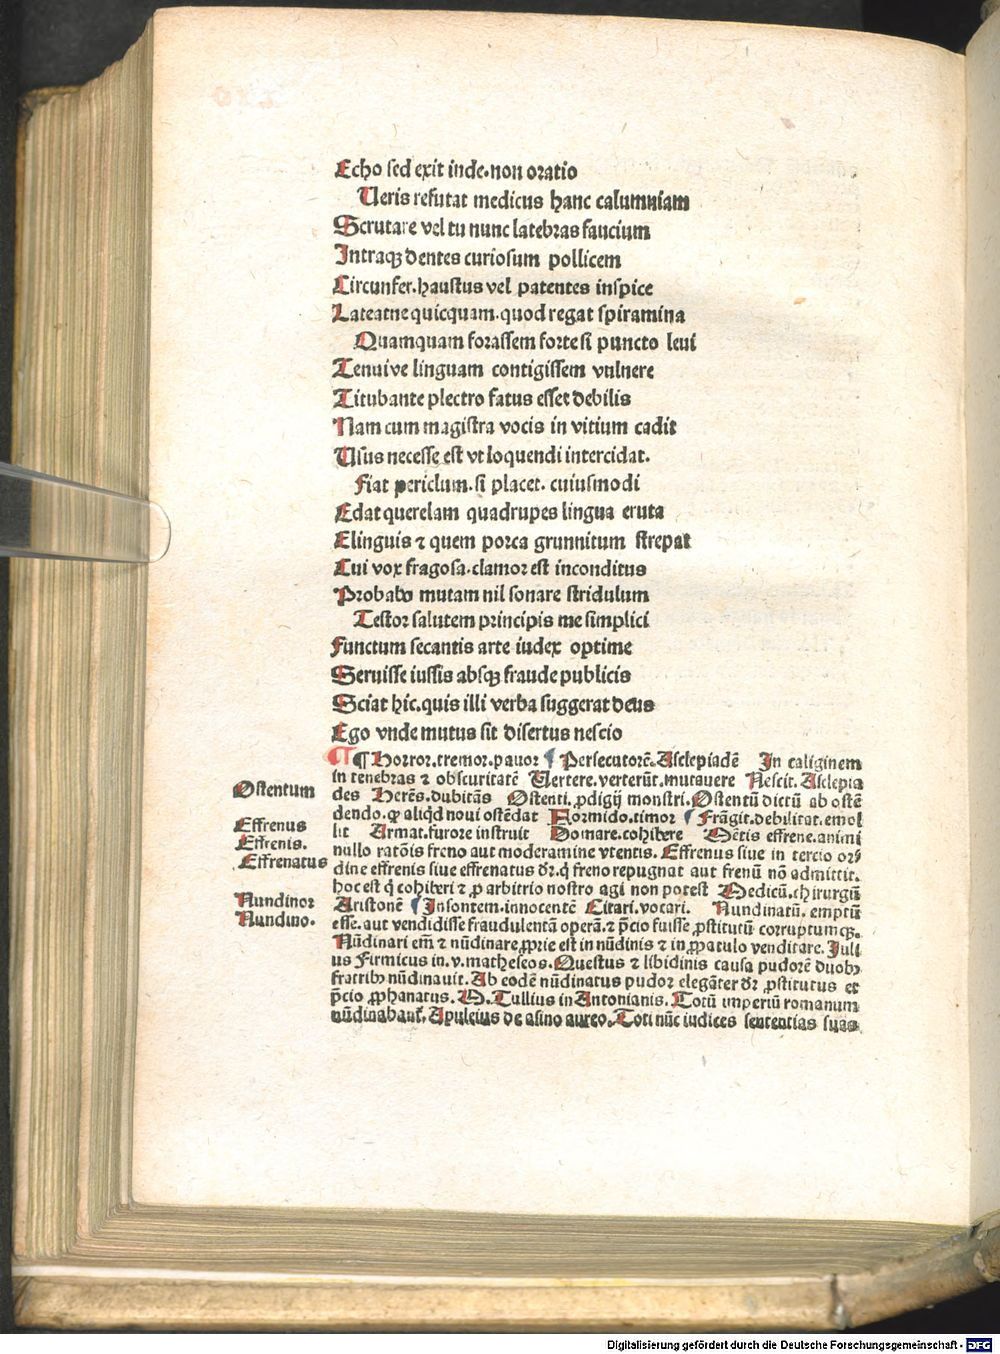 Echo sed exit inde.non oratio
Ueris refutat medicus hanc calumniam
Scrutare vel tu nunc latebras faucium
Intraqꝫ dentes curiosum pollicem
Circunfer.haustus vel patentes inspice
Lateatne quicquam.quod regat spiramina
Quamquam forassem forte si puncto leui
Tenuive linguam contigissem vulnere
Titubante plectro fatus esset debilis
Nam cum magistra vocis in vitium cadit
Usus necesse est vt loquendi intercidat.
Fiat periclum.si placet.cuiusmodi
Edat querelam quadrupes lingua eruta
Elinguis ⁊ quem porca grunnitum strepat
Cui vox fragosa.clamor est inconditus
Probabo mutam nil sonare stridulum
Testor salutem principis me simplici
Functum secantis arte iudex optime
Seruisse iussis absqꝫ fraude publicis
Sciat hic.quis illi verba suggerat deus
Ego vnde mutus sit disertus nescio
¶ ¶ Horror.tremor.pavor ¶ Persecutorē.Asclepiadē In caliginem
in tenebras ⁊ obscuritatē Vertere.verterūt.mutauere Nescit.Asclepia
Ostentum
des Herēs.dubitās Ostenti.ꝓdigij monstri.Ostentū dictū ab ostē
dendo.ꝙ aliqd noui ostēdat Formido.timor ¶ Frāgit.debilitat.emol
Effrenus
lit Armat.furore instruit Domare.cohibere Mētis effrene.animi
Effrenis.
nullo ratōis freno aut moderamine vtentis. Effrenus siue in tercio ori
Effrenatus
dine effrenis siue effrenatus dr̄.q̇ freno repugnat aut frenū nō admittit.
hoc est q̇ cohiberi ⁊ ꝓ arbitrio nostro agi non potest Medicū.chirurgū
Nundinor
Aristonē ¶ Insontem.innocentē Citari.vocari. Nundinatū. emptū
Nundino.
esse.aut vendidisse fraudulentā operā.⁊ p̄cio fuisse ꝓstitutū corruptumqꝫ.
Nūdinari em̄ ⁊ nūdinare ꝓprie est in nūdinis ⁊ in ꝓpatulo venditare. Juli
us Firmicus in.v.matheseos.Questus ⁊ libidinis causa pudorē duobꝫ
fratribꝫ nūdinauit.Ab eodē nūdinatus pudor elegāter dr̄ ꝓstitutus et
p̄cio ꝓphanatus. M.Tullius in Antonianis. Totū imperiū romanum
nūdinabant̄.Apuleius de asino aureo.Toti nūc iudices sententias suas
Digitalisierung gefördert durch die Deutsche Forschungsgemeinschaft - DFG